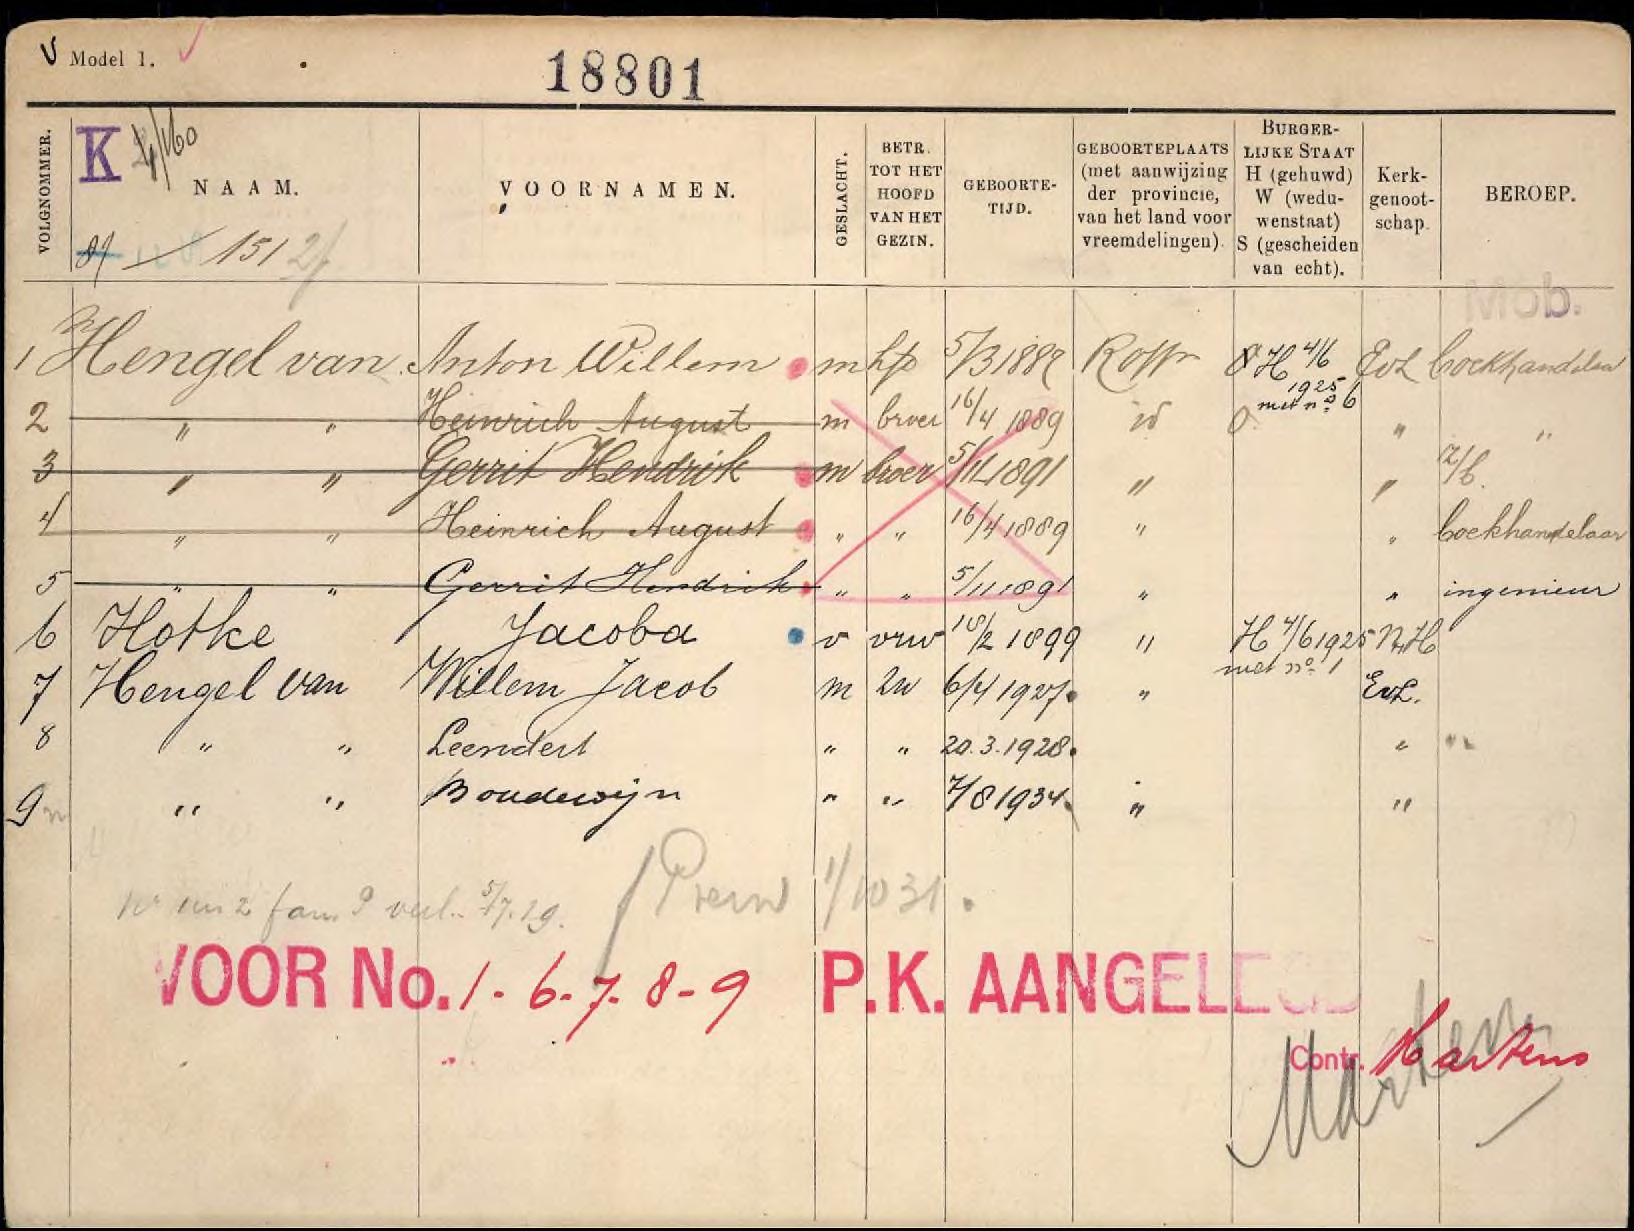 V Model 1.
18801
K 4/160
VOLGNOMMER.
NAAM.
VOORNAMEN.
GESLACHT.
BETR. TOT HET HOOFD VAN HET GEZIN.
GEBOORTE-TIJD.
GEBOORTEPLAATS (met aanwijzing der provincie, van het land voor vreemdelingen).
BURGER-LIJKE STAAT H (gehuwd) W (wedu-wenstaat) S (gescheiden van echt).
Kerk-genoot-schap.
BEROEP.
151
Mob.
1 Hengel van Anton Willem m hfd 5/3 1887 Rott H 4/6 1925 met no 6 EvL boekhandelaar
2 " " Heinrich August m broer 16/4 1889 id " "
3 " " Gerrit Hendrik m broer 5/11 1891 " " z/b.
4 " " Heinrich August " " 16/4 1889 " " boekhandelaar
5 " " Gerrit Hendrik " " 5/11 1891 " " ingenieur
6 Hotke Jacoba v vrw 18/2 1899 " H 4/6 1925 met no 1 N.H
7 Hengel van Willem Jacob m zn 6/4 1927. " EvL.
8 " " Leendert " " 20.3.1928. "
9 " " Boudewijn " " 7/8 1934. " "
fam 9 verl. 5/7.29.
1/10 31.
VOOR No. 1-6-7-8-9 P.K. AANGELEGD
Contr. Martens
Martens